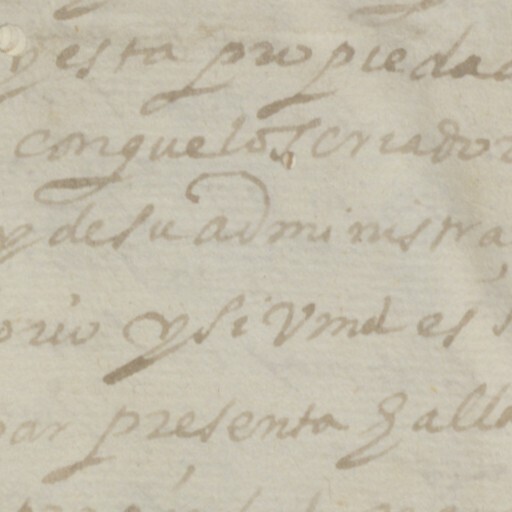 y esta propiedad
conquelos criador
y desu administra
orio ysi Vmd es s
par presenta halla